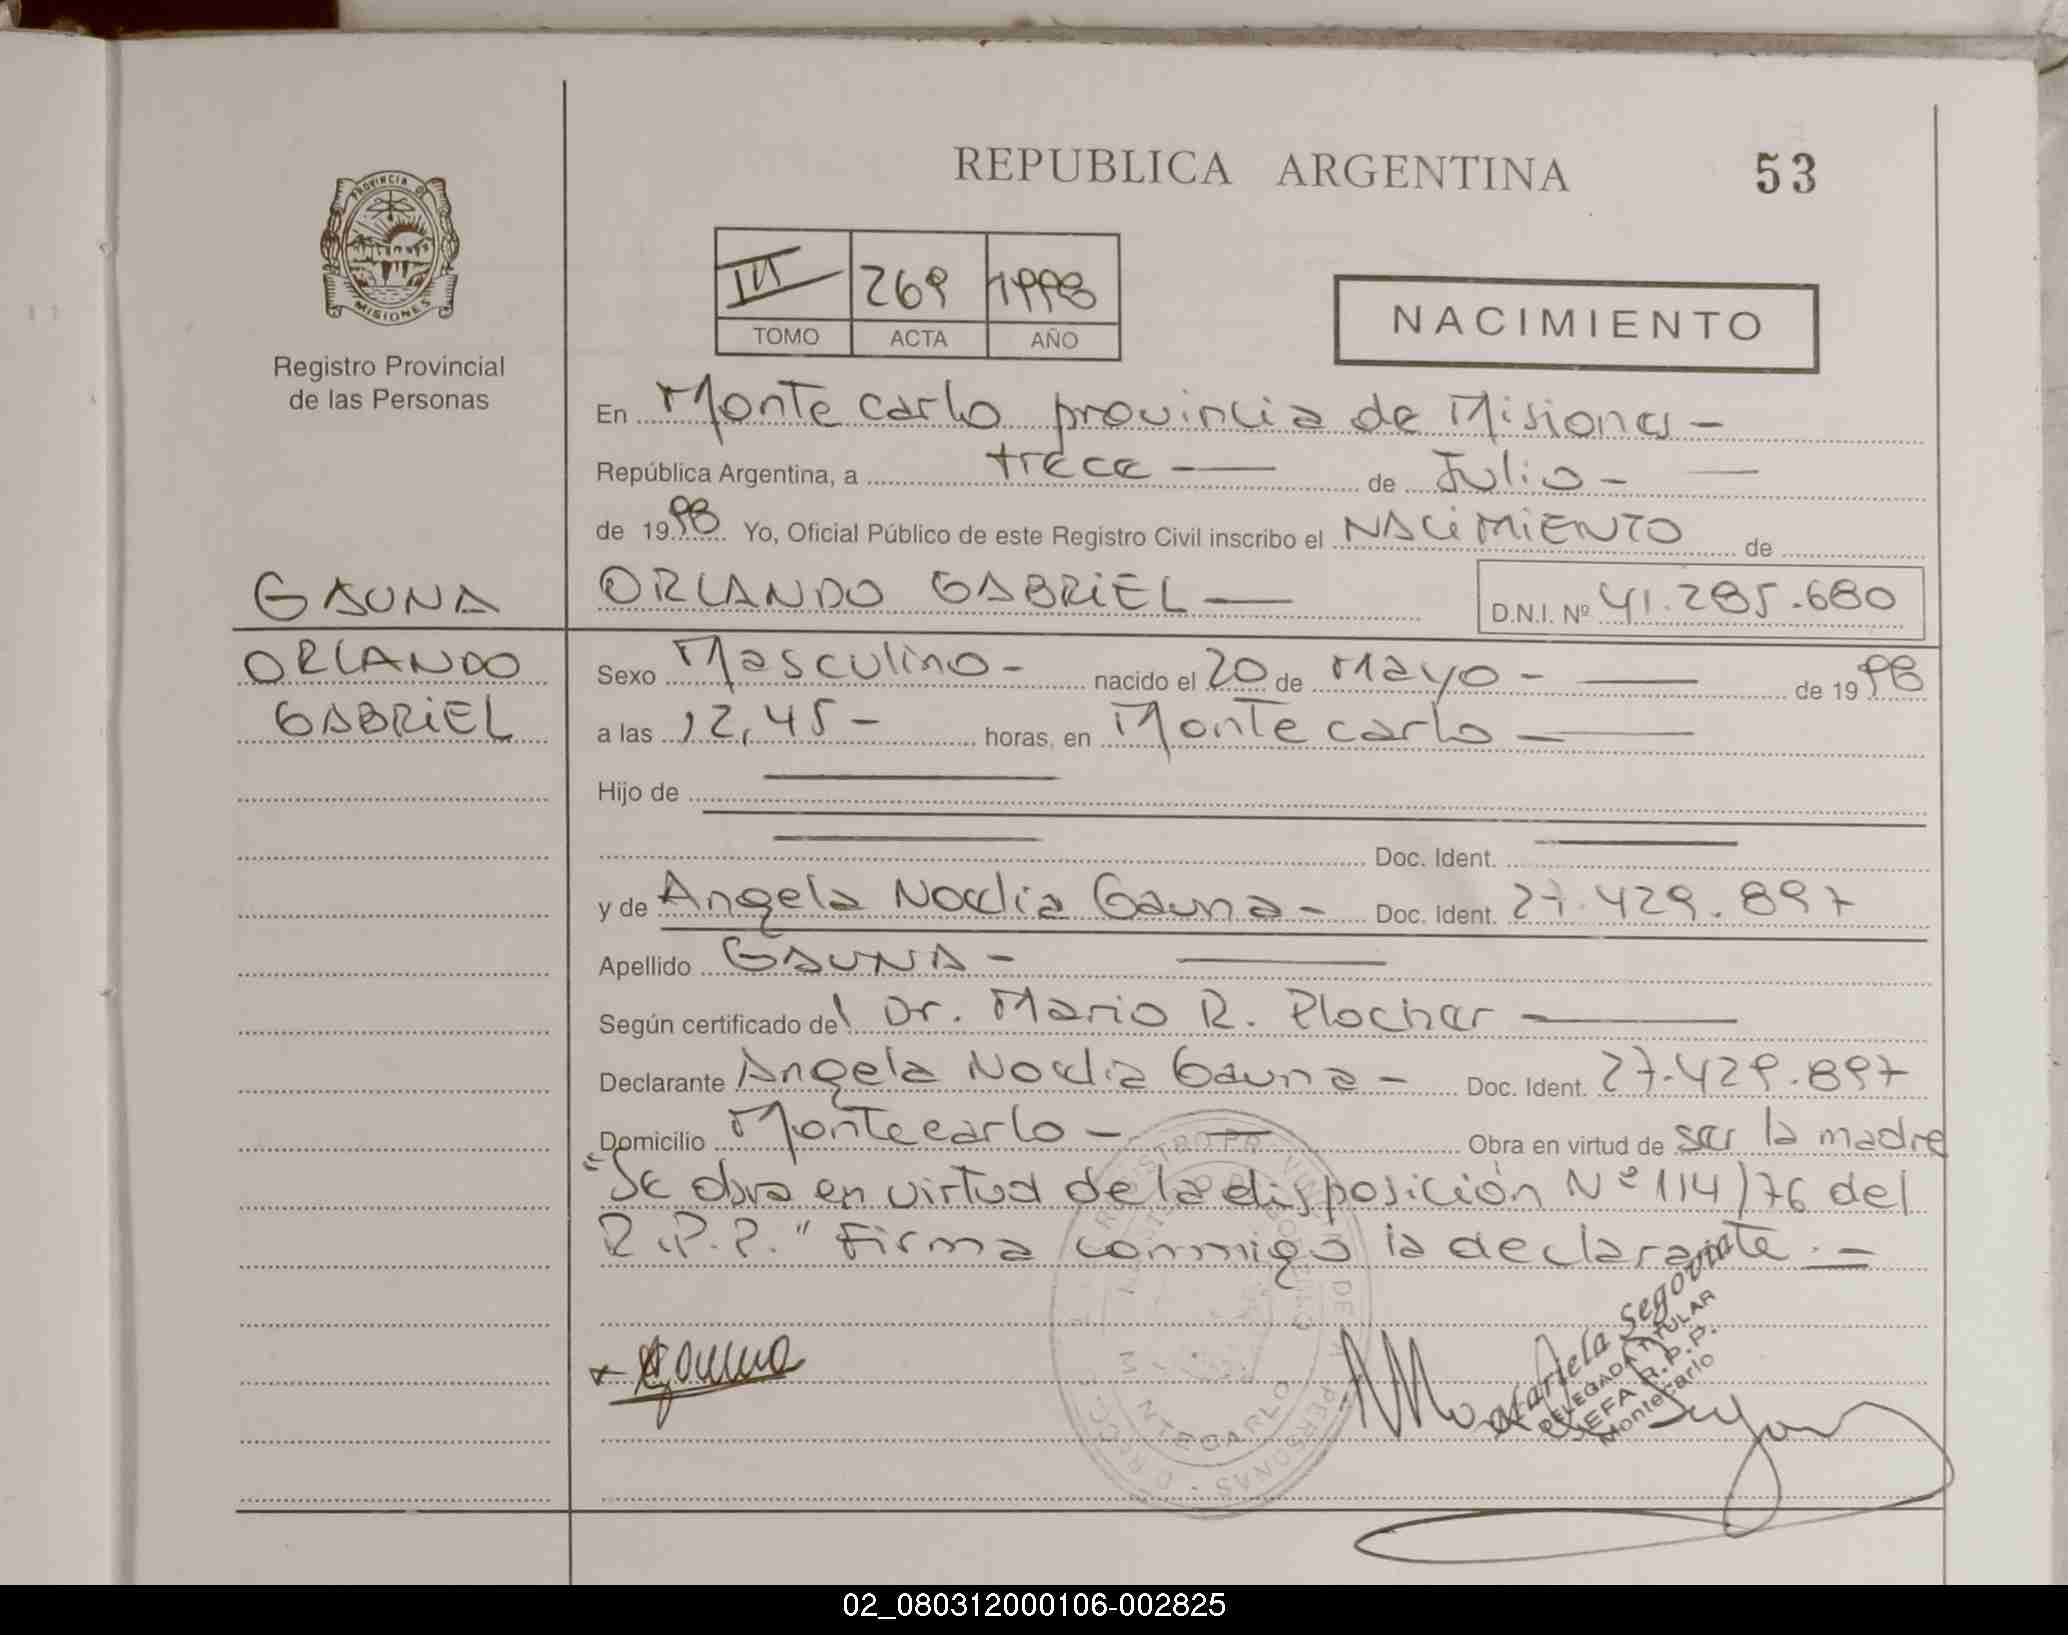 REPUBLICA ARGENTINA 53
PROVINCIA DE
MISIONES
Registro Provincial
de las Personas
III 269 1998
TOMO ACTA AÑO
NACIMIENTO
En Monte carlo provincia de Misiones -
República Argentina, a trece - de Julio -
de 1998 Yo, Oficial Público de este Registro Civil inscribo el NACIMIENTO de
GAUNA
ORLANDO GABRIEL - D.N.I. Nº 41.285.680
ORLANDO
GABRIEL
Sexo Masculino - nacido el 20 de Mayo - de 1998
a las 12,45 - horas, en Monte carlo -
Hijo de
Doc. Ident.
y de Angela Noelia Gauna - Doc. Ident. 27.429.897
Apellido GAUNA -
Según certificado del Dr. Mario R. Plochar
Declarante Angela Noelia Gauna - Doc. Ident. 27.429.897
Domicilio Montecarlo - Obra en virtud de ser la madre
"Se obra en virtud de la disposición Nº 114/76 del
R.P.P." Firma conmigo la declarante. =
x Gauna
Mariela Segovia
DELEGADA TITULAR
JEFA R.P.P.
Montecarlo
MONTECARLO
02_080312000106-002825